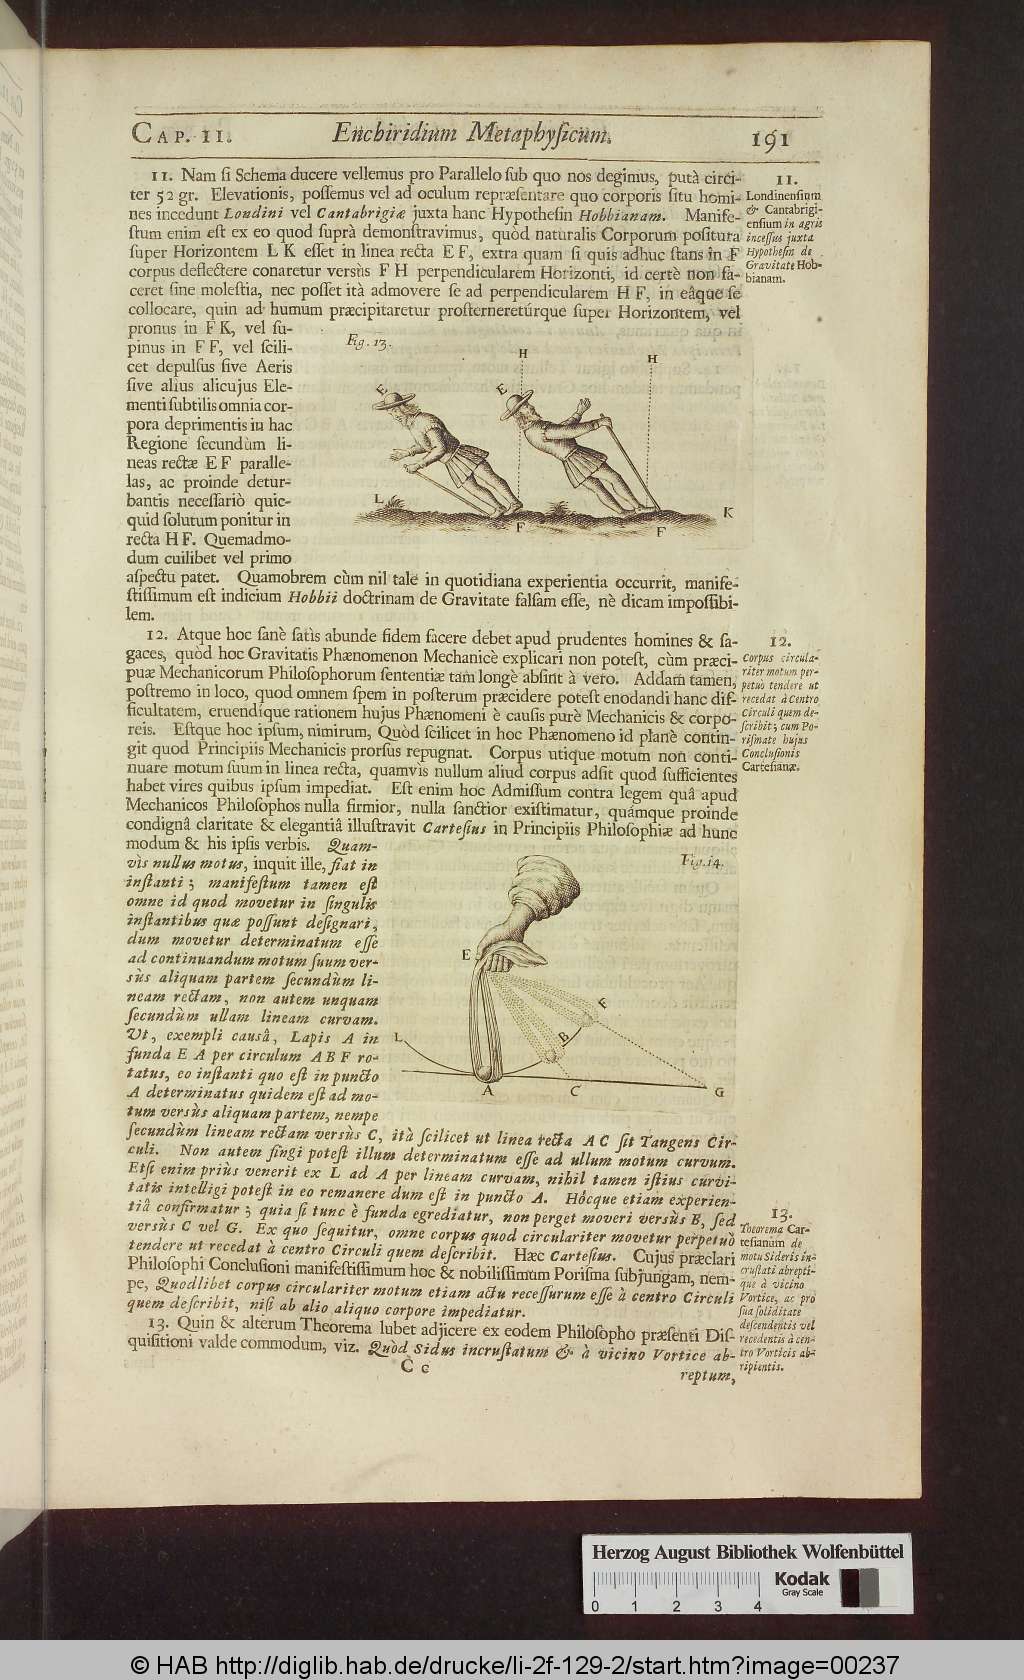 CAP. II. Enchiridium Metaphyſicum. 191
11. Nam ſi Schema ducere vellemus pro Parallelo ſub quo nos degimus, putà circi-
ter 52 gr. Elevationis, poſſemus vel ad oculum repræſentare quo corporis ſitu homi-
nes incedunt Londini vel Cantabrigiæ juxta hanc Hypotheſin Hobbianam. Manife-
ſtum enim eſt ex eo quod ſuprà demonſtravimus, quòd naturalis Corporum poſitura
ſuper Horizontem L K eſſet in linea recta E F, extra quam ſi quis adhuc ſtans in F
corpus deflectere conaretur versùs F H perpendicularem Horizonti, id certè non fa-
ceret ſine moleſtia, nec poſſet ità admovere ſe ad perpendicularem H F, in eâque ſe
collocare, quin ad humum præcipitaretur proſternereturque ſuper Horizontem, vel
pronus in F K, vel ſu-
pinus in F F, vel ſcili-
cet depulſus ſive Aeris
ſive alius alicujus Ele-
menti ſubtilis omnia cor-
pora deprimentis in hac
Regione ſecundùm li-
neas rectæ E F paralle-
las, ac proinde detur-
bantis neceſſariò quic-
quid ſolutum ponitur in
recta H F. Quemadmo-
dum cuilibet vel primo
aſpectu patet. Quamobrem cùm nil tale in quotidiana experientia occurrit, manife-
ſtiſſimum eſt indicium Hobbii doctrinam de Gravitate falſam eſſe, nè dicam impoſſibi-
lem.
11.
Londinenſium
& Cantabrigi-
enſium in agris
inceſſus juxta
Hypotheſin de
Gravitate Hob-
bianam.
Fig. 13.
E E H H
L F F K
12. Atque hoc ſanè ſatìs abunde fidem facere debet apud prudentes homines & ſa-
gaces, quòd hoc Gravitatis Phænomenon Mechanicè explicari non poteſt, cùm præci-
puæ Mechanicorum Philoſophorum ſententiæ tam longè abſint à vero. Addam tamen,
poſtremo in loco, quod omnem ſpem in poſterum præcidere poteſt enodandi hanc dif-
ficultatem, eruendíque rationem hujus Phænomeni è cauſis purè Mechanicis & corpo-
reis. Eſtque hoc ipſum, nimirum, Quòd ſcilicet in hoc Phænomeno id planè contin-
git quod Principiis Mechanicis prorſus repugnat. Corpus utique motum non conti-
nuare motum ſuum in linea recta, quamvis nullum aliud corpus adſit quod ſufficientes
habet vires quibus ipſum impediat. Eſt enim hoc Admiſſum contra legem quâ apud
Mechanicos Philoſophos nulla firmior, nulla ſanctior exiſtimatur, quámque proinde
condignâ claritate & elegantiâ illuſtravit Carteſius in Principiis Philoſophiæ ad hunc
modum & his ipſis verbis. Quam-
vis nullus motus, inquit ille, fiat in
inſtanti; manifeſtum tamen eſt
omne id quod movetur in ſingulis
inſtantibus quæ poſſunt deſignari,
dum movetur determinatum eſſe
ad continuandum motum ſuum ver-
sùs aliquam partem ſecundùm li-
neam rectam, non autem unquam
ſecundùm ullam lineam curvam.
Ut, exempli causâ, Lapis A in
funda E A per circulum A B F ro-
tatus, eo inſtanti quo eſt in puncto
A determinatus quidem eſt ad mo-
tum versùs aliquam partem, nempe
ſecundùm lineam rectam versùs C, ità ſcilicet ut linea recta A C ſit Tangens Cir-
culi. Non autem fingi poteſt illum determinatum eſſe ad ullum motum curvum.
Etſi enim priùs venerit ex L ad A per lineam curvam, nihil tamen iſtius curvi-
tatis intelligi poteſt in eo remanere dum eſt in puncto A. Hócque etiam experien-
tiâ confirmatur; quia ſi tunc è funda egrediatur, non perget moveri versùs B, ſed
versùs C vel G. Ex quo ſequitur, omne corpus quod circulariter movetur perpetuò
tendere ut recedat à centro Circuli quem deſcribit. Hæc Carteſius. Cujus præclari
Philoſophi Concluſioni manifeſtiſſimum hoc & nobiliſſimum Poriſma ſubjungam, nem-
pe, Quodlibet corpus circulariter motum etiam actu receſſurum eſſe à centro Circuli
quem deſcribit, niſi ab alio aliquo corpore impediatur.
12.
Corpus circula-
riter motum per-
petuò tendere ut
recedat à Centro
Circuli quem de-
ſcribit; cum Po-
riſmate hujus
Concluſionis
Carteſianæ.
Fig. 14.
E F B L A C G
13. Quin & alterum Theorema lubet adjicere ex eodem Philoſopho præſenti Diſ-
quiſitioni valde commodum, viz. Quòd Sidus incruſtatum & à vicino Vortice ab-
13.
Theorema Car-
teſianum de
motu Sideris in-
cruſtati abrepti-
que à vicino
Vortice, ac pro
ſua ſoliditate
deſcendentis vel
recedentis à cen-
tro Vorticis ab-
ripientis.
C c reptum,
Herzog August Bibliothek Wolfenbüttel
0 1 2 3 4
Kodak
Gray Scale
© HAB http://diglib.hab.de/drucke/li-2f-129-2/start.htm?image=00237